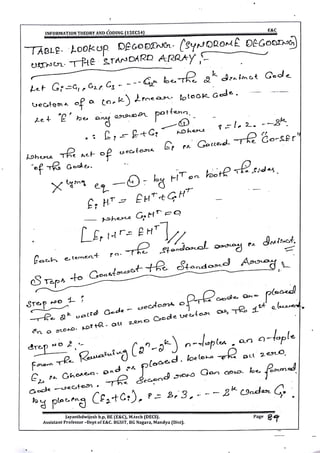 INFORMATION THEORY AND CODING (15EC54) E&C
TABLE. LOOKUP DECODING. (SYNDROME DECODING)
USING. THE STANDARD ARRAY ;-
Let G1 = C1, C2, C3 - - - be The 2^k distinct Code
vectors of a (n, k) Linear block Code.
Let 'E' be any error pattern.
∴ Ei = E + Ci — ①
where i = 1, 2, - - 2^k.
where The set of vectors Ei is Called The Co-SET
of The Code.
Xlying eq — ① by H^T on both The Sides,
Ei H^T = E H^T + Ci H^T
- - where Ci H^T = 0
[Ei H^T = E H^T]
Each element in The Standard array is distinct.
Steps to Construct the Standard Array
STEP NO 1 :
The 2^k valid Code - vectors of The Code are placed
in a row, with all zero Code vector as The 1st element.
STEP NO 2 :-
From The Remaining (2^n - 2^k) n-tuples, an n-tuple
E2 is Chosen and is placed below The all zero.
Code - vector. The Second row Can now be formed
by placing (E2 + Ci), i = 2, 3, - - - 2^k Under Ci.
Jayanthdwijesh h.p, BE (E&C), M.tech (DECS).
Assistant Professor -Dept of E&C. BGSIT, BG Nagara, Mandya (Dist).
Page 89